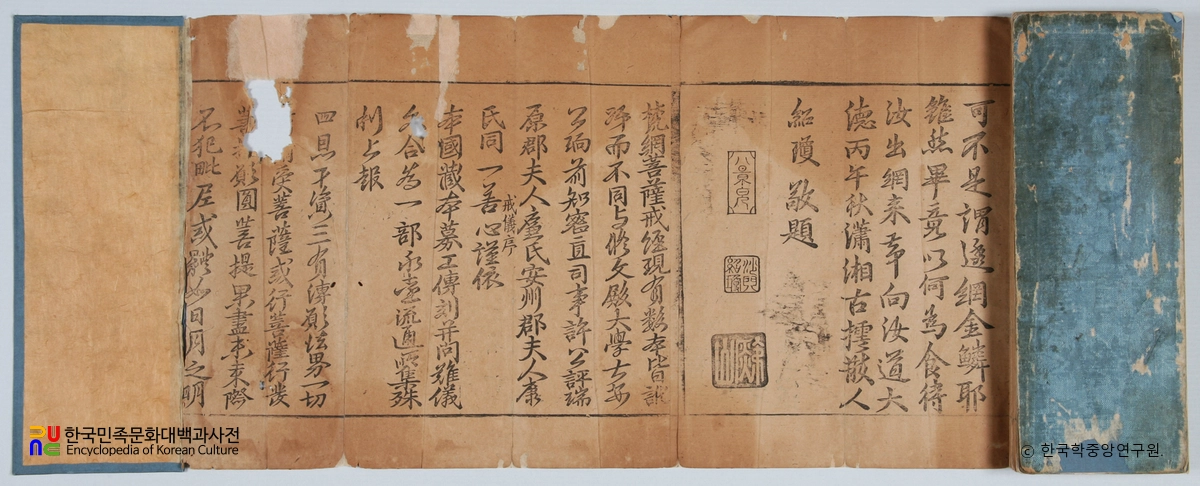 可不是謂透網金鱗耶
雖然畢竟以何為食待
汝出網来幸向汝道大
德丙午秋瀟湘古樗散人
紹瓊 敬題
八景見
沙門
紹瓊
梵網菩薩戒経現有数本皆
浄而不同与修文殿大學士
公珦前知宻直司事許公評瑞
原郡夫人廬氏安州郡夫人康
氏同一善心謹依
戒儀序
本國藏本募工傳刻并同難儀
合為一部永壹流通所集殊
利上報
四恩下資三有溥願法界一切
受菩薩或行菩薩行发
願圓菩提果盡未来際
不犯毗左或體如日月之明
한국민족문화대백과사전
Encyclopedia of Korean Culture
© 한국학중앙연구원.